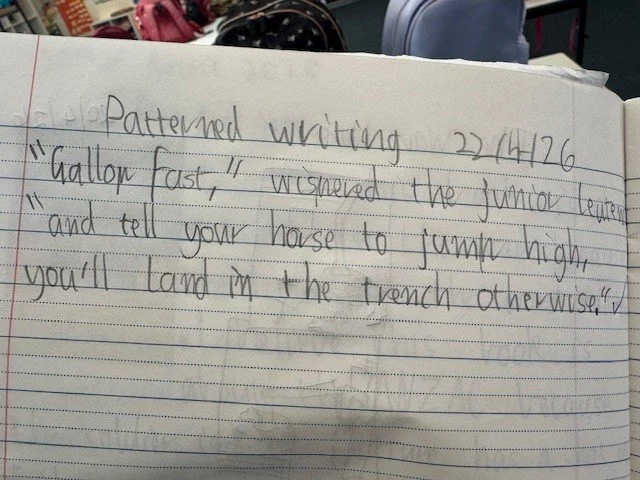 Patterned writing 22/4/26
"Gallop fast," wispered the junior leuten
"and tell your horse to jump high,
you'll land in the trench otherwise."